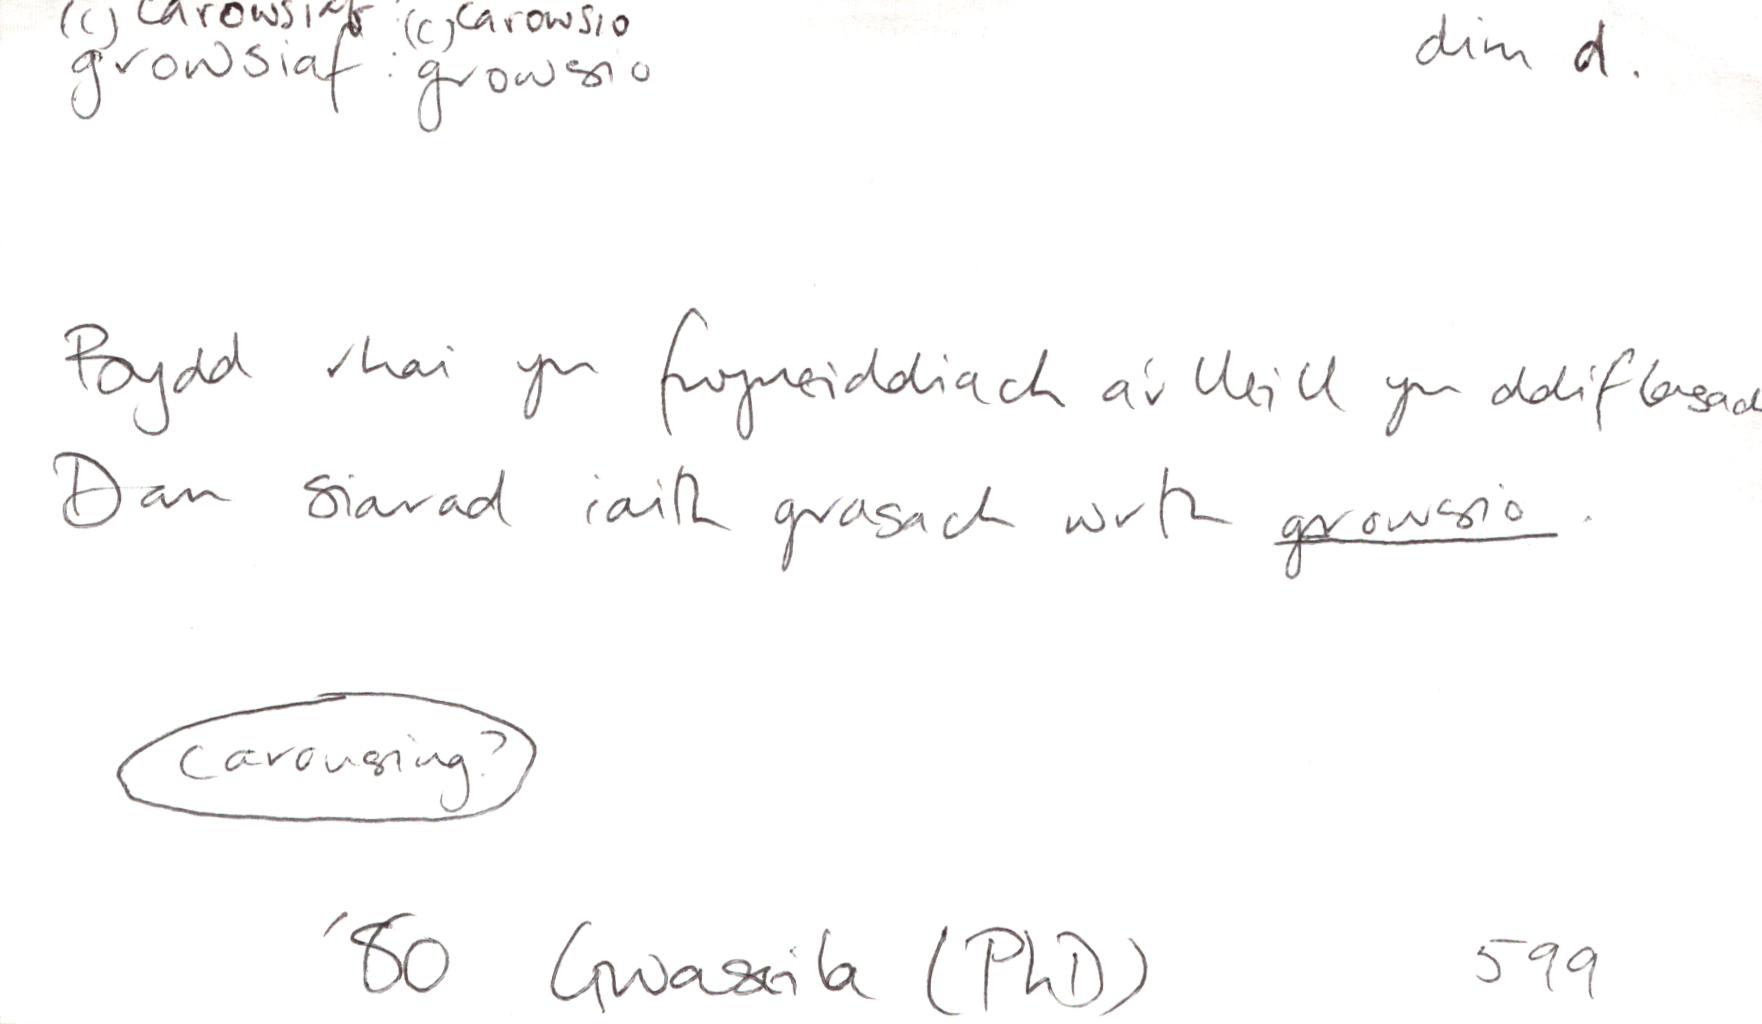 (c) carowsiaf: (c) carowsio
growsiaf: growsio dim d.
Bydd rhai yn frogneiddiach a'r lleill yn ddiflasach
Dan siarad iaith grasach wrth growsio.
carousing?
'80 Gwaseila (PhD) 599